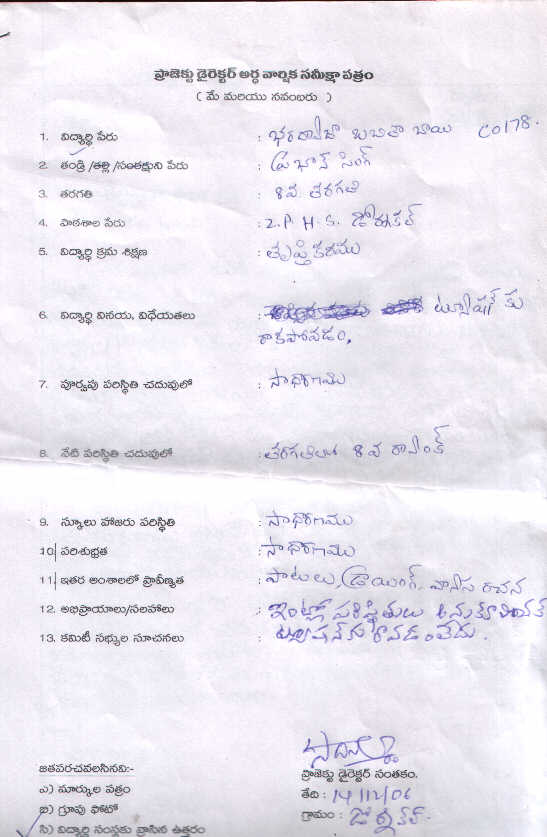 ప్రాజెక్టు డైరెక్టర్ అర్ధ వార్షిక సమీక్షా పత్రం
( మే మరియు నవంబరు )
1. విద్యార్థి పేరు : బబితా బాయి CO178.
2. తండ్రి /తల్లి /సంతక్షుని పేరు : ప్రభాన్ సింగ్
3. తరగతి : 8వ తరగతి
4. పాఠశాల పేరు : Z.P.H.S. డోర్నకల్
5. విద్యార్థి క్రమ శిక్షణ : తృప్తికరము
6. విద్యార్థి వినయ, విధేయతలు : ట్యూషన్ కు
రాకపోవడం.
7. పూర్వపు పరిస్థితి చదువులో : సాధారణము
8. నేటి పరిస్థితి చదువులో : తరగతిలో 8వ ర్యాంక్
9. స్కూలు హాజరు పరిస్థితి : సాధారణము
10. పరిశుభ్రత : సాధారణము
11. ఇతర అంశాలలో ప్రావీణ్యత : పాటలు, డ్రాయింగ్, వ్యాస రచన
12. అభిప్రాయాలు/సలహాలు : ఇంట్లో పరిస్థితులు అనుకూలించక
13. కమిటీ సభ్యుల సూచనలు : ట్యూషన్ కు రావడం లేదు.
జతపరచవలసినవి:-
ఎ) మార్కుల పత్రం
బి) గ్రూపు ఫోటో
సి) విద్యార్థి సంస్థకు వ్రాసిన ఉత్తరం
ప్రాజెక్టు డైరెక్టర్ సంతకం.
తేది : 14/12/06
గ్రామం : డోర్నకల్.